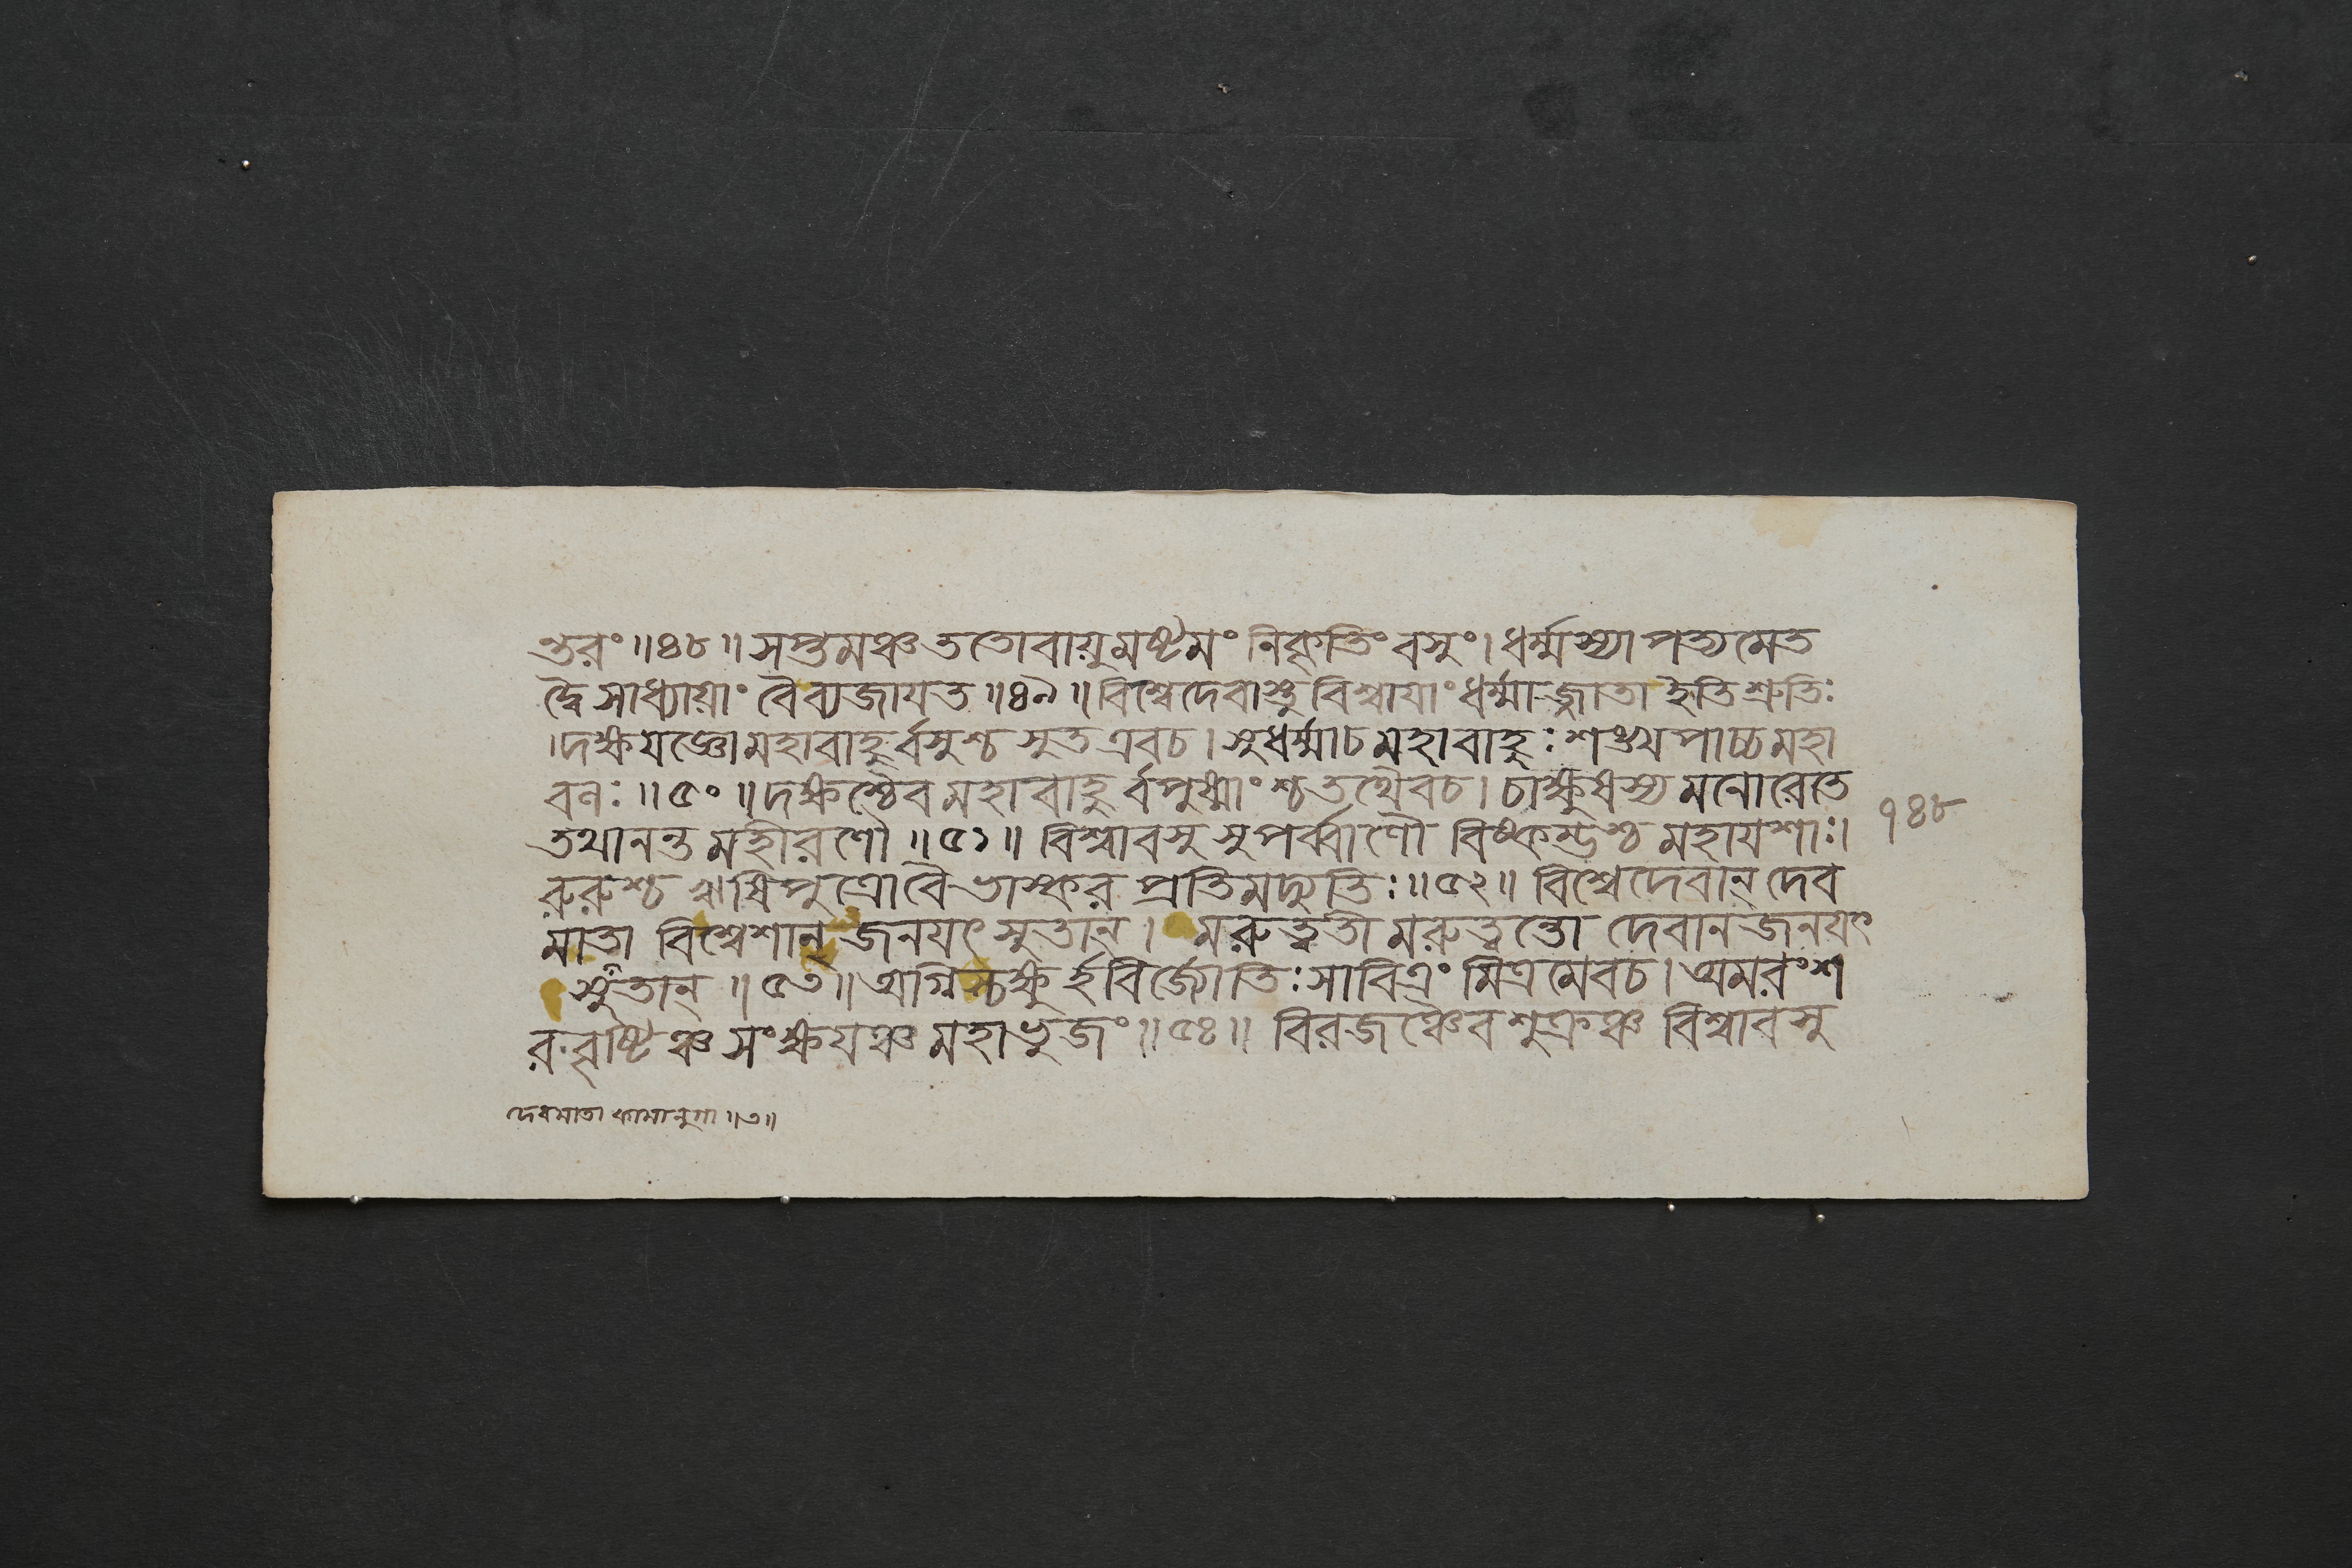 ন্তরং ॥ ৪৮ ॥ সপ্তমঞ্চ ততো বায়ুমষ্টমং নিরৃতিং বসুং । ধর্ম্মস্যাপত্যমেত
দ্বৈ সাধ্যায়াং বৈ ব্যজায়ত ॥ ৪৯ ॥ বিশ্বেদেবাস্তু বিশ্বায়াং ধর্ম্মাজ্জাতা ইতি শ্রুতিঃ
। দক্ষযজ্ঞো মহাবাহুর্বসুশ্চ সুত এবচ । সুধর্ম্মাচ মহাবাহুঃ শঙ্খপাচ্চ মহা
বলঃ ॥ ৫০ ॥ দক্ষশ্চৈব মহাবাহুর্বপুষ্মাংশ্চ তথৈবচ । চাক্ষুষস্য মনোরেতে
তথানন্ত মহীরণৌ ॥ ৫১ ॥ বিশ্বাবসু সুপর্ব্বাণৌ বিষ্কম্ভশ্চ মহাযশাঃ ।
১৪৮
রুরুশ্চ ঋষিপুত্রো বৈ ভাস্কর প্রতিমদ্যুতিঃ ॥ ৫২ ॥ বিশ্বেদেবান্ দেব
মাতা বিশ্বেশান্ জনযৎ সুতান্ । মরুত্বতী মরুত্বন্তো দেবানজনযৎ
সুতান্ ॥ ৫৩ ॥ অগ্নিশ্চক্ষুর্হবির্জ্যোতিঃ সাবিত্রং মিত্রমেবচ । অমরং শ
রবৃষ্টিঞ্চ সংক্ষযঞ্চ মহাভুজং ॥ ৫৪ ॥ বিরজঞ্চৈব শুক্রঞ্চ বিশ্বাবসু
দেবমাতা কামানুগা ॥ ৩ ॥